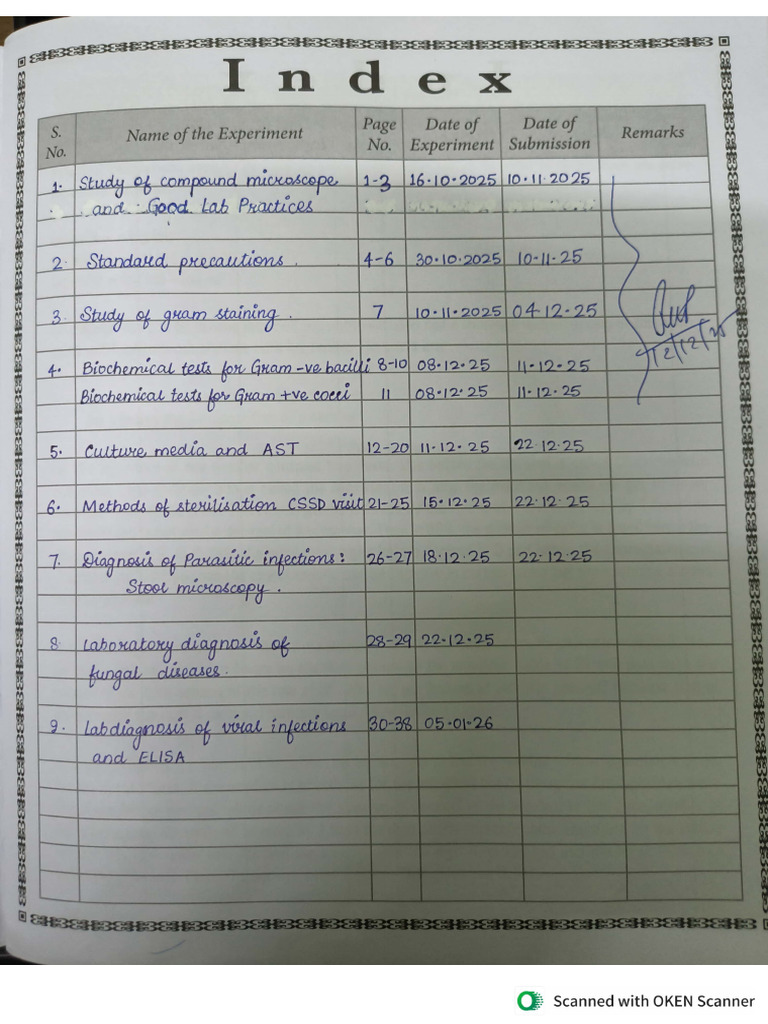 Index
S. No. Name of the Experiment Page No. Date of Experiment Date of Submission Remarks
1. Study of compound microscope 1-3 16.10.2025 10.11.2025
and Good Lab Practices
2. Standard precautions. 4-6 30.10.2025 10.11.25
3. Study of gram staining. 7 10.11.2025 04.12.25
4. Biochemical tests for Gram -ve bacilli 8-10 08.12.25 11.12.25
Biochemical tests for Gram +ve cocci 11 08.12.25 11.12.25
12/12/25
5. Culture media and AST 12-20 11.12.25 22.12.25
6. Methods of sterilisation CSSD visit 21-25 15.12.25 22.12.25
7. Diagnosis of Parasitic infections: 26-27 18.12.25 22.12.25
Stool microscopy.
8. Laboratory diagnosis of 28-29 22.12.25
fungal diseases.
9. Lab diagnosis of viral infections 30-38 05.01.26
and ELISA
Scanned with OKEN Scanner